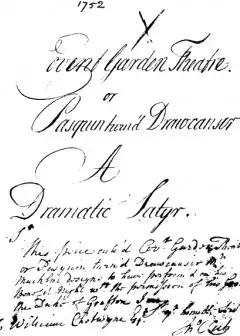 1752
Covent Garden Theatre.
or
Pasquin turn'd Drawcanser
A
Dramatic Satyr.
Sr
This piece call'd Covt. Garden Theatre
or Pasquin turn'd Drawcanser Mr.
Macklin designs to have perform'd on his
Benefit Night with the permission of his Grace
the Duke of Grafton
William Chetwynd Esqr